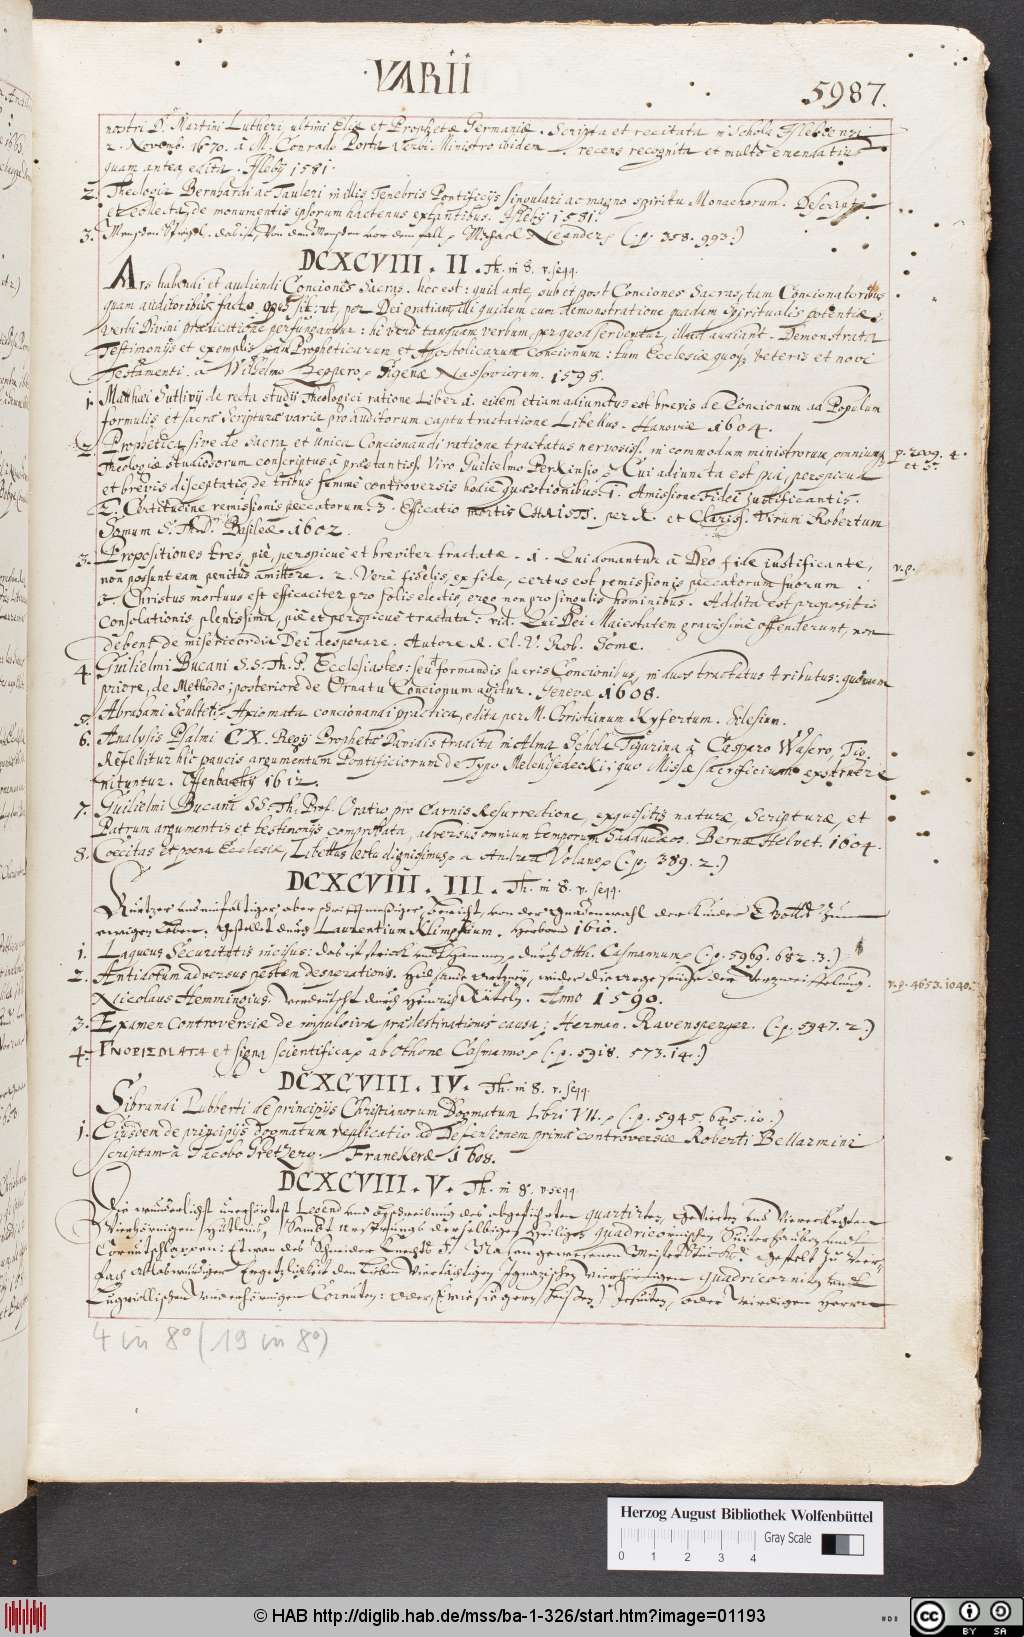 VARII
5987.
nostri D. Martini Lutheri ultimi Eliæ et Prophetæ Germaniæ. Scripta et recitata in Schola Islebiensi
2. Novemb. 1570. à M. Conrado Porta Verbi Ministro ibidem recens recognita et multò emendatius
quam antea edita. Islebij 1581.
2. Theologia Bernhardi ac Tauleri in illis Tenebris Pontificijs singulari ac magno spiritu Monachorum. Descripta
et collecta, de monumentis ipsorum hactenus extantibus. Islebij 1581.
3. Menschen Spiegel. das ist, Von dem Menschen vor dem fall Michael Neander (.p. 358. 993.)
DCXCVIII. II. Th. in 8. v. seqq.
Ars habendi et audiendi Concionis Sacras. hoc est: quid ante, sub et post Conciones Sacras, tam Concionatoribus
quam auditoribus facto opus sit: ut, per Dei gratiam, illi quidem cum demonstratione quadam Spiritualis potentiæ
verbi Divini prædicatione perfungantur: hi verò tanquam verbum, per quod serventur, illud audiant. Demonstrata
Testimonijs et exemplis tam Propheticarum et Apostolicarum Concionum: tum Ecclesiæ quoq; veteris et novi
Testamenti. à Wilhelmo Zeppero. Sigenæ Nassoviorum. 1598.
1. Matthæi Sutlivij de recta studij Theologici ratione Liber 1. eidem etiam adiunctus est brevis de Concionum ad Populum
formulis et sacræ Scripturæ varia pro auditorum captu tractatione Libellus. Hanoviæ 1604.
2. Prophetica, sive de Sacra et unica Concionandi ratione tractatus nervosiss. in commodum ministrorum omnium
p. 2009. 4.
et 5.
Theologiæ studiosorum conscriptus à præstantiss. Viro Guilielmo Perkinsio. Cui adiuncta est pia, perspicua
et brevis disceptatio, de tribus summè controversis hodie quæstionibus. 1. Amissione Fidei justificantis.
2. Certitudine remissionis peccatorum. 3. Efficatio mortis CHRISTI. per R. et Clariss. Virum Robertum
Somum S. Th. D. Basileæ. 1602.
3. Propositiones tres, piè, perspicuè et breviter tractatæ. 1. Qui donantur à Deo fide iustificante,
v. p.
non possunt eam penitus amittere. 2. Verè fidelis, ex fide, certus est remissionis peccatorum suorum.
3. Christus mortuus est efficaciter pro solis electis, ergo non pro singulis hominibus. Addita est propositio
Consolationis plenissima, piè et perspicuè tractata: vid. Qui Dei Maiestatem gravissimè offenderunt, non
debent de misericordia Dei desperare. Autore R. Cl. V. Rob. Some.
4. Guilielmi Bucani S. S. Th. P. Ecclesiastes: seu formandis sacris Concionibus, in duos tractatus tributus: quorum
priore, de Methodo; posteriore de Ornatu Concionum agitur. Genevæ 1608.
5. Abrahami Sculteti Axiomata concionandi practica, edita per M. Christianum Kyfertum. Silesium.
6. Analysis Psalmi CX. Regij Prophetæ Davidis tradita in Alma Schola Tigurina à Casparo Wasero, Tig.
Refellitur hîc paucis argumentum Pontificiorum de Typo Melchisedecki; quo Missæ sacrificium exstruere
nituntur. Offenbachij 1612.
7. Guilielmi Bucani SS. Th. Prof. Oratio pro Carnis Resurrectione, exquisitis naturæ, Scripturæ, et
Patrum argumentis et testimonijs comprobata, adversus omnium temporum Sadducæos. Bernæ Helvet. 1604.
8. Coecitas et poena Ecclesiæ, Libellus lectu dignissimus à Andrea Volano (.p. 389. 2.)
DCXCVIII. III. Th. in 8. v. seqq.
Kurtzer und einfältiger aber schrifftmessiger Bericht, von der Gnadenwahl der Kinder Gottes zum
ewigen Leben. Gestellet durch Laurentium Klimpfium. Herborn 1610.
1. Laqueus Securitatis incisus: das ist durch Otth. Casmannum (.p. 5969. 682. 3.)
2. Antidotum adversus pestem desperationis. Heilsame Artzney, wider die der Verzweiffelung.
v. p. 4653. 1040.
Nicolaus Hemmingius. Verdeutscht durch Heinrich Räteln. Anno 1590.
3. Examen Controversiæ de impulsiva prædestinationis causa; Herman. Ravensperger. (.p. 5947. 2.)
4. ΓΝΟΡΙΣΜΑΤΑ et signa scientifica ab Othone Casmanno (.p. 5918. 573. 14.)
DCXCVIII. IV. Th. in 8. v. seqq.
Sibrandi Lubberti de principijs Christianorum Dogmatum Libri VII. (.p. 5945. 645. 10.)
1. Eiusdem de principijs dogmatum replicatio ad Defensionem primæ controversiæ Roberti Bellarmini
scriptam à Jacobo Gretzero. Franekeræ 1608.
DCXCVIII. V. Th. in 8. v. seqq.
Die wunderlichst unerhörtest Legend und Beschreibung des abgeführten quartirten, Gevierten und Viereckechten
Vierhörnigen Hütleins, Sampt Ursprungs derselbigen Heiligen quadricornischen Suiterhauben und
Cornutschlappen: Etwan des Schneider Knechts gewesenen Meisterstück. Gestelt zu
Ergetzlichkeit den Lieben Ignazischen Vierhörnigen quadricorniten und
Luguiollischen Cornuten: oder, wie sie gern heissen, Jesuiten, oder Würdigen Herrn
4 in 8° (19 in 8°)
Herzog August Bibliothek Wolfenbüttel
Gray Scale
0 1 2 3 4
© HAB http://diglib.hab.de/mss/ba-1-326/start.htm?image=01193
cc BY SA